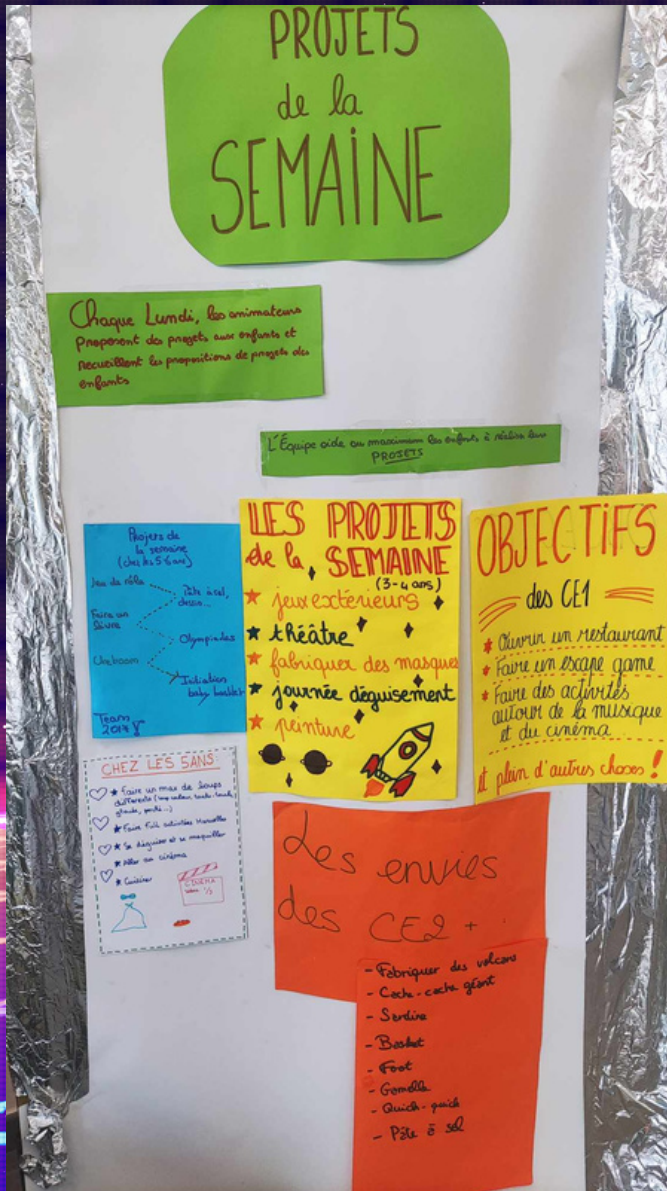 PROJETS
de la
SEMAINE
Chaque Lundi, les animateurs
Proposent des projets aux enfants et
recueillent les propositions de projets des
enfants
L'Équipe aide au maximum les enfants à réaliser leurs
PROJETS
Projets de
la semaine
(chez les 5-6 ans)
Jeu de rôle
Pâte à sel,
dessin...
Faire un
livre
Olympiades
Initiation
baby basket
Team
2017
LES PROJETS
de la SEMAINE
(3-4 ans)
★ jeux extérieurs
★ théâtre
★ fabriquer des masques
★ journée déguisement
★ peinture
OBJECTIFS
des CE1
* Ouvrir un restaurant
* Faire un escape game
* Faire des activités
autour de la musique
et du cinéma
et plein d'autres choses !
CHEZ LES 5ANS
★ Faire un max de loups
différents
★ Faire Full activités Manuelles
★ Se déguiser et se maquiller
★ Aller au cinéma
★ Cuisiner
CINEMA
Les envies
des CE2 +
- Fabriquer des volcans
- Cache-cache géant
- Sardine
- Basket
- Foot
- Gamelle
- Quick-quick
- Pâte à sel